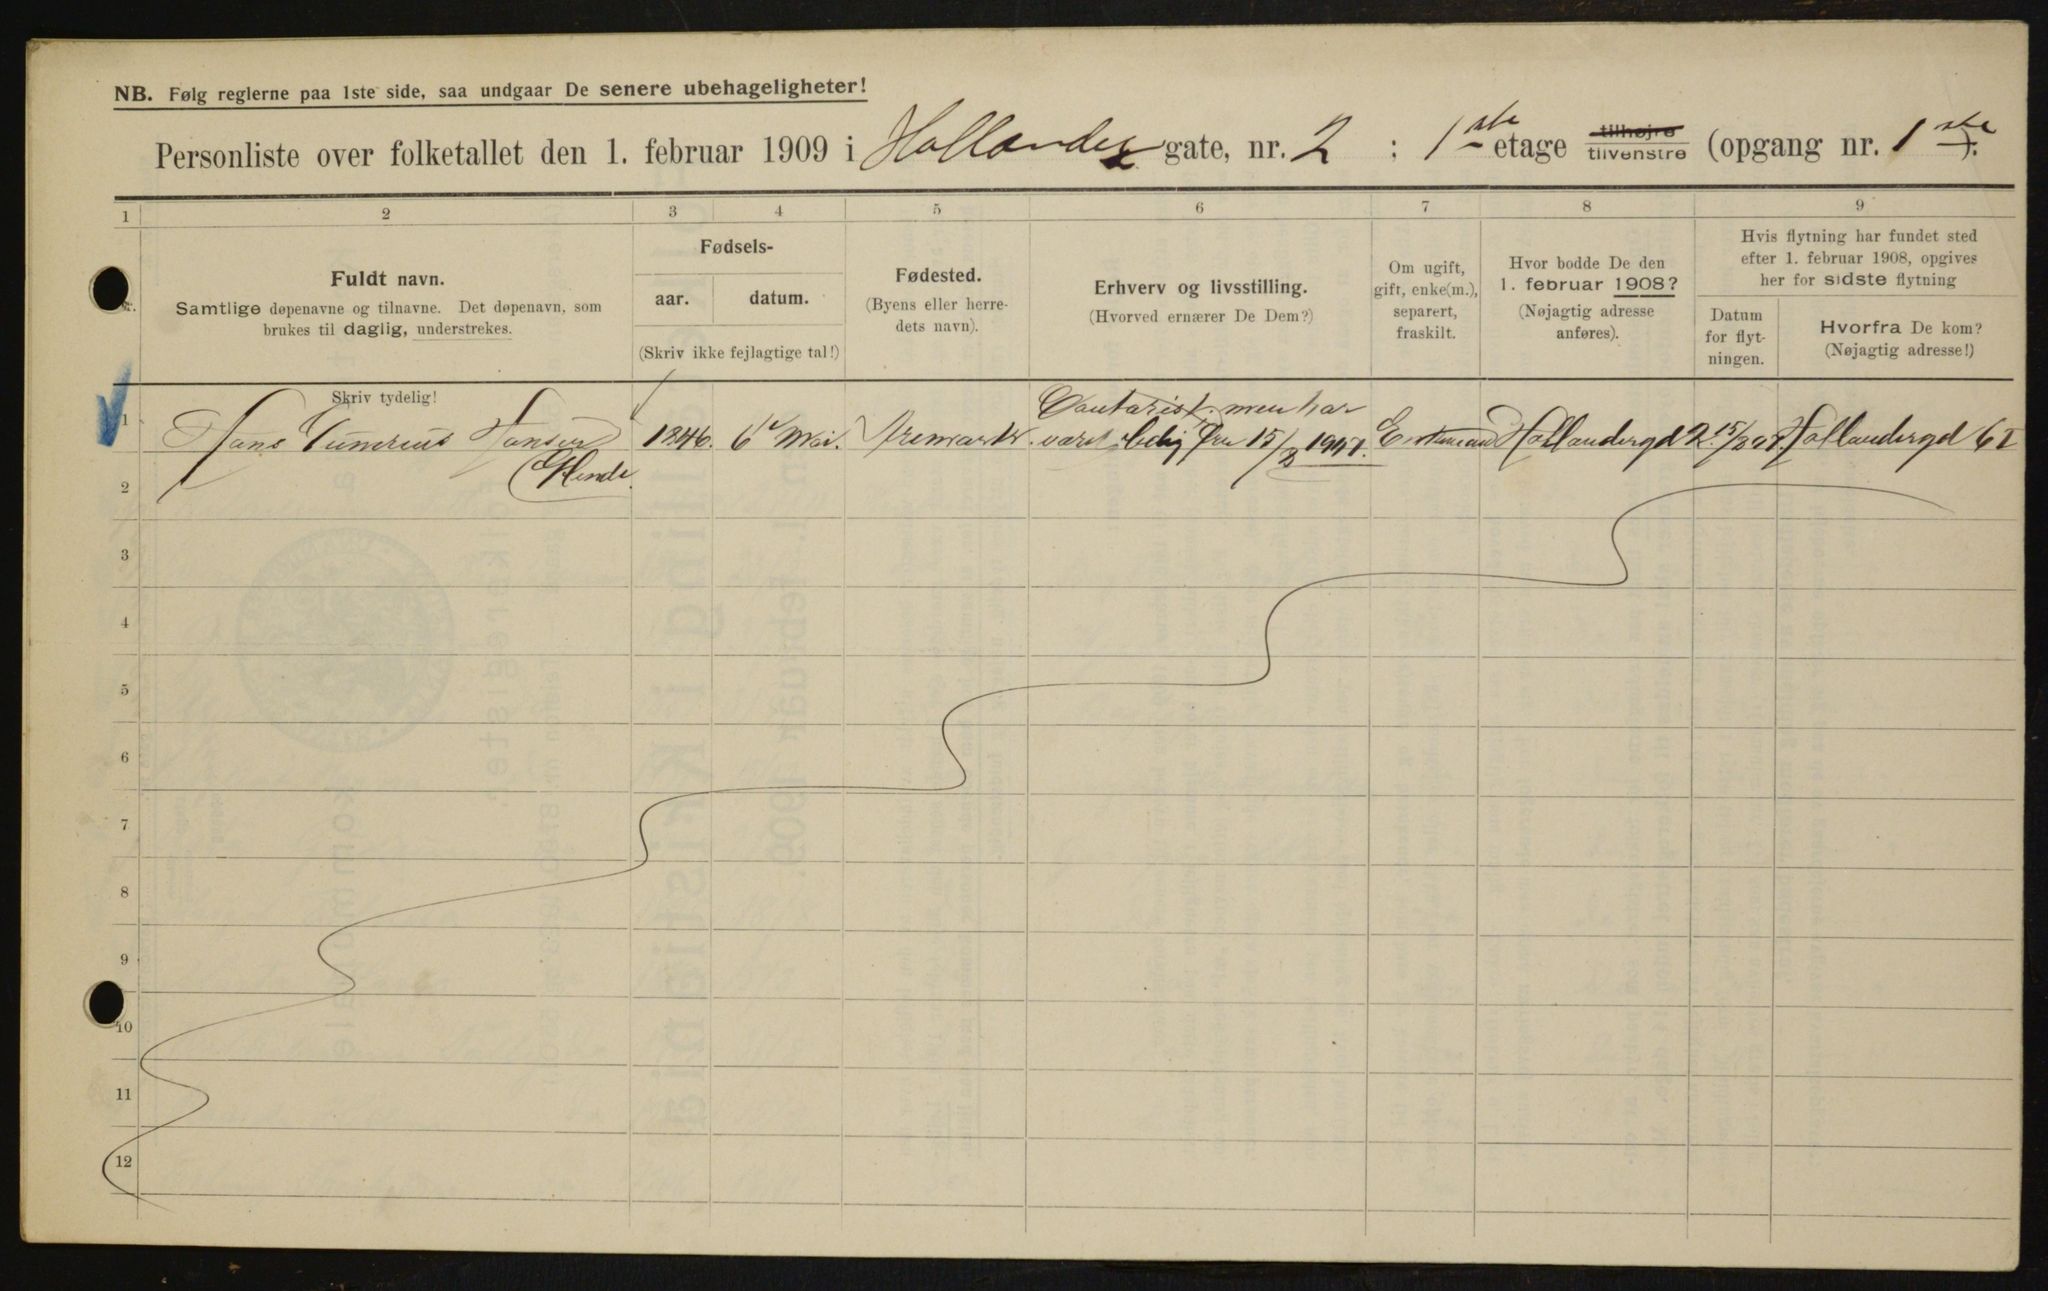 NB. Følg reglerne paa 1ste side, saa undgaar De senere ubehageligheter!
Personliste over folketallet den 1. februar 1909 i Hollender gate, nr. 2 ; 1ste etage tilhøjre tilvenstre (opgang nr. 1ste).
1 2 3 4 5 6 7 8 9
Fuldt navn.
Samtlige døpenavne og tilnavne. Det døpenavn, som
brukes til daglig, understrekes.
Skriv tydelig!
Fødsels-
aar. datum.
(Skriv ikke fejlagtige tal!)
Fødested.
(Byens eller herre-
dets navn).
Erhverv og livsstilling.
(Hvorved ernærer De Dem?)
Om ugift,
gift, enke(m.),
separert,
fraskilt.
Hvor bodde De den
1. februar 1908?
(Nøjagtig adresse
anføres).
Hvis flytning har fundet sted
efter 1. februar 1908, opgives
her for sidste flytning
Datum
for flyt-
ningen.
Hvorfra De kom?
(Nøjagtig adresse!)
men har
1 Hans Hansen 1846. 6te Mai. Aremark. været ledig fra 15/3 1907. Enkemand Hollendergd 2. Hollendergd 6 I
2
3
4
5
6
7
8
9
10
11
12